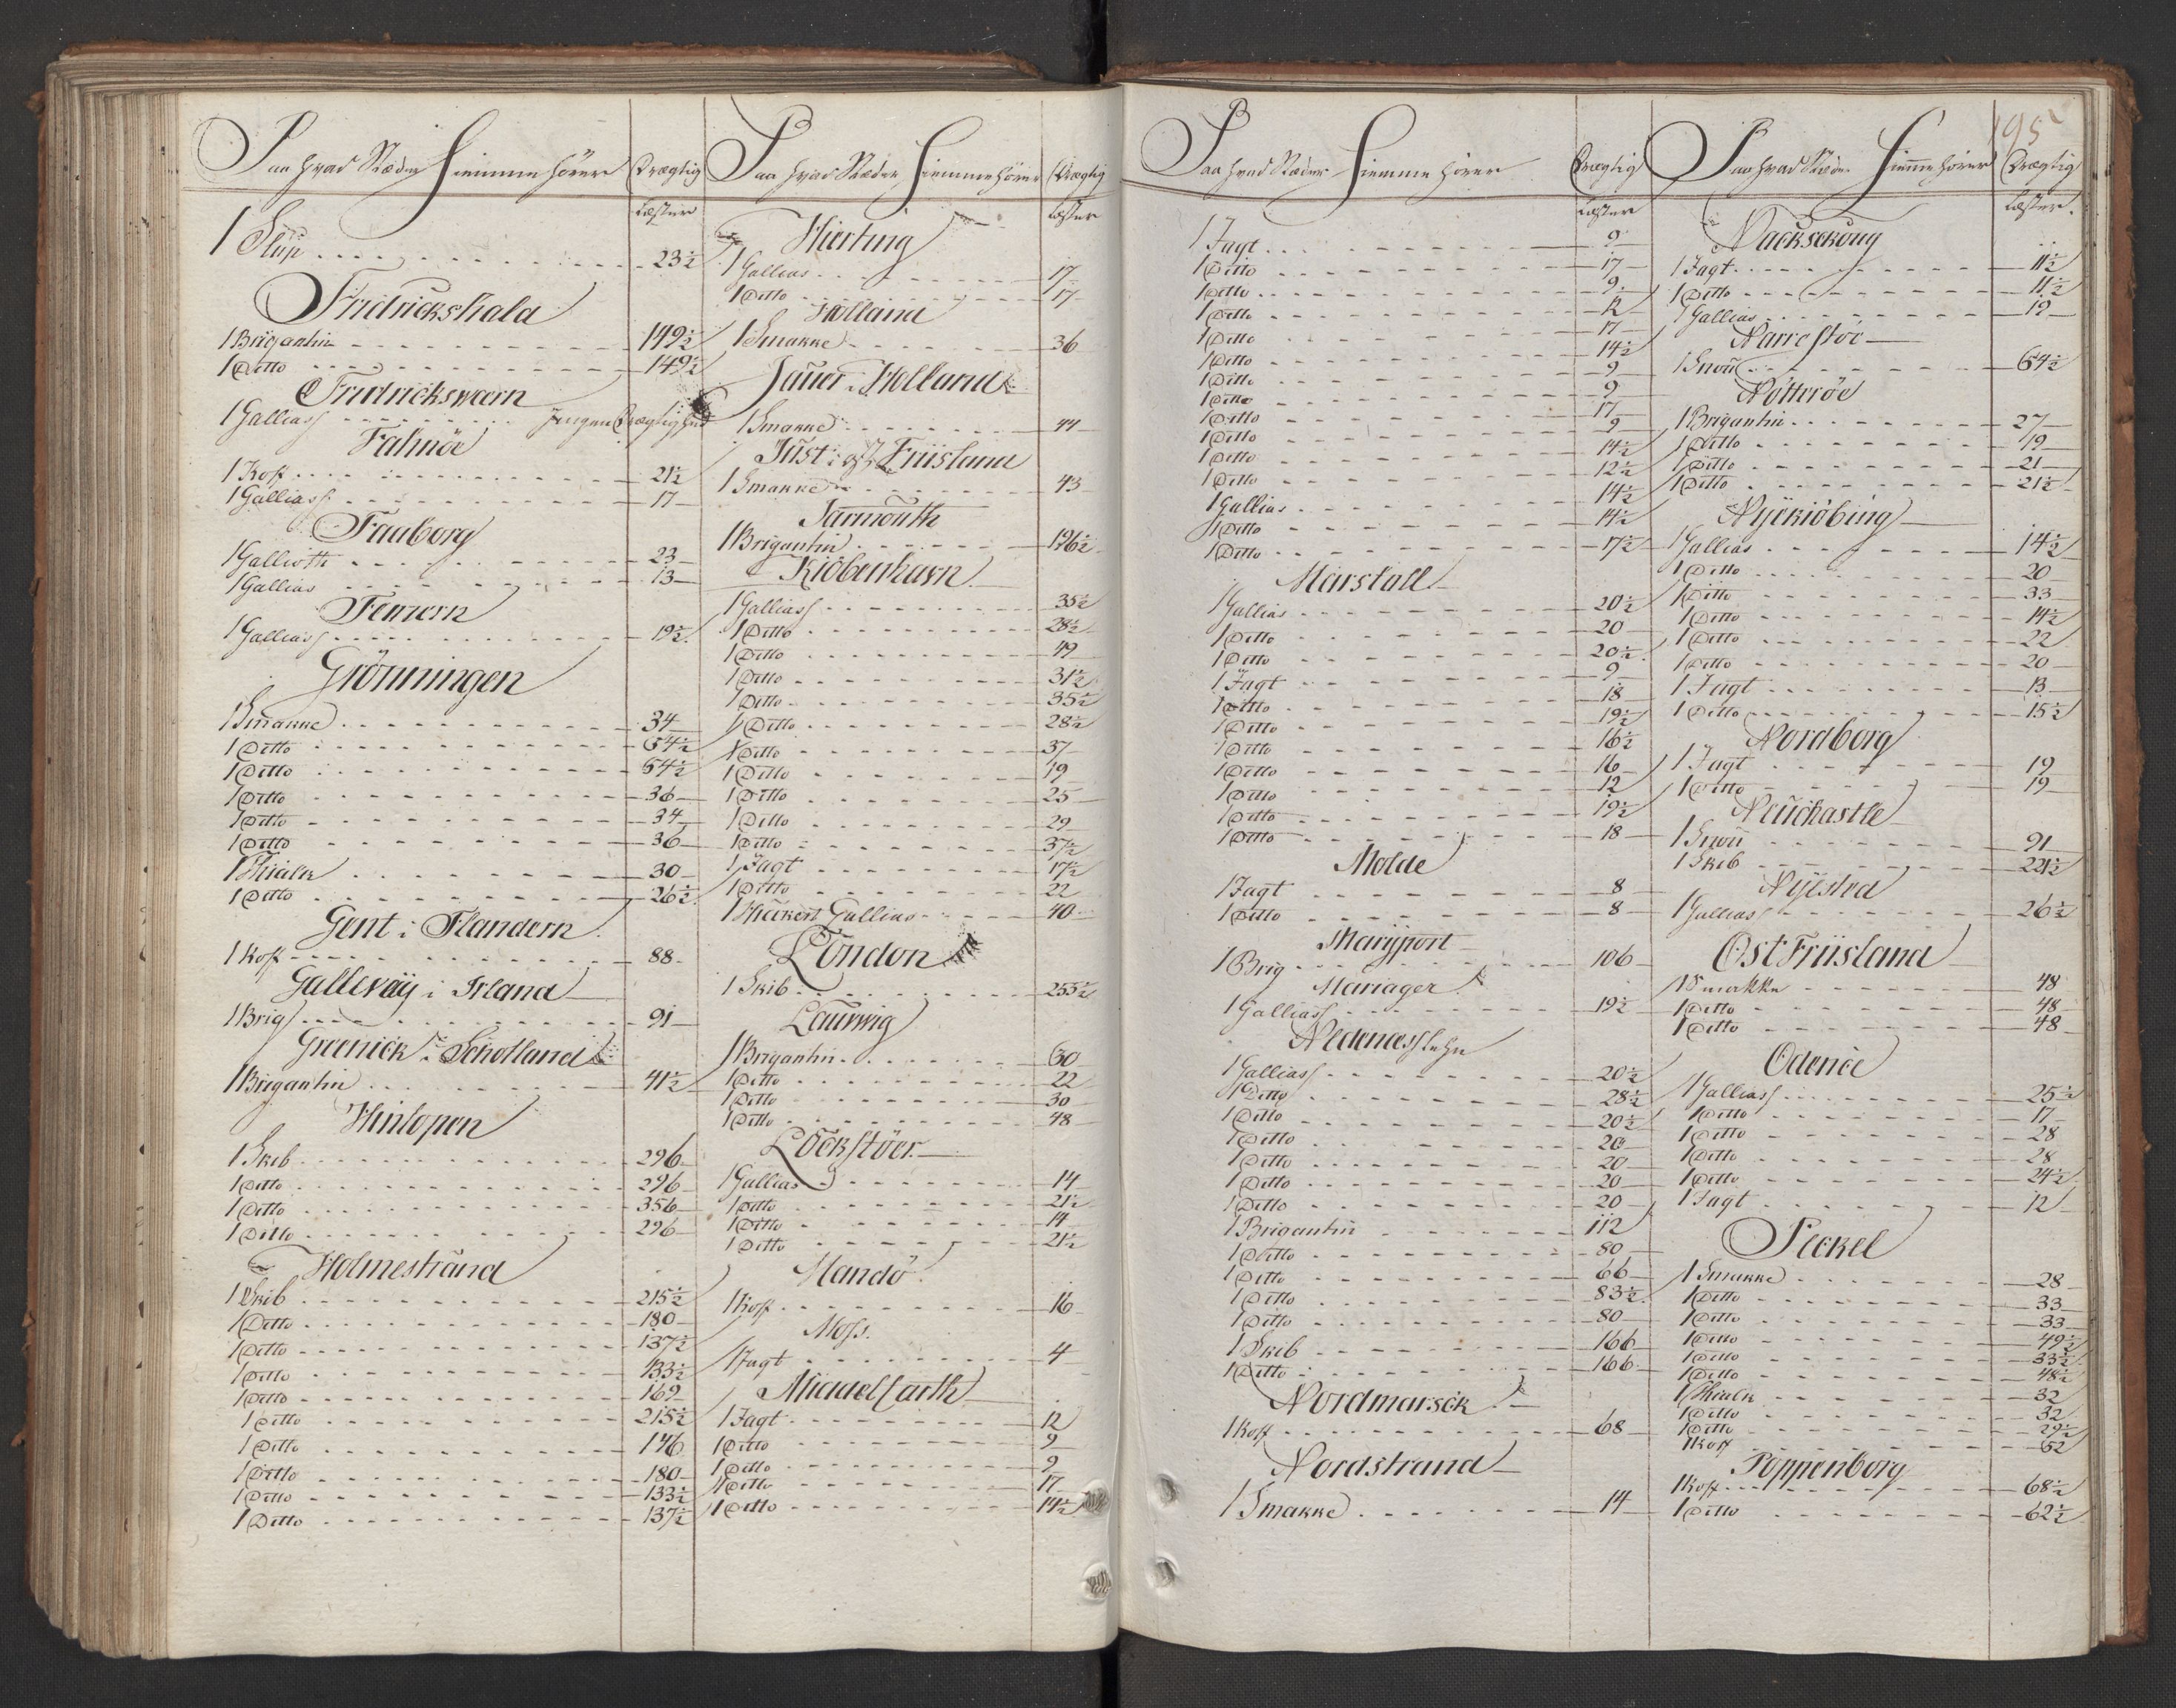 Paa hvad Stæder Hiemmehörer Drægtig
Læster
1 Slup 23½
Fridrickshald
1 Brigantin 149½
1 Ditto 149½
Fridrickswærn
1 Galliass Jngen Drægtighed
Falmöe
1 Koff 21½
1 Galliass 17
Faaborg
1 Gallioth 23
1 Gallias 13
Femern
1 Galliass 19½
Grönningen
1 Smakke 34
1 Ditto 54½
1 Ditto 54½
1 Ditto 36
1 Ditto 34
1 Ditto 36
1 Thialk 30
1 Ditto 26½
Gent i Flandern
1 Koff 88
Gallevaÿ i Irland
1 Brig 91
Greenick i Schotland
1 Brigantin 41½
Hinlopen
1 Skib 296
1 Ditto 296
1 Ditto 356
1 Ditto 296
Holmestrand
1 Skib 215½
1 Ditto 180
1 Ditto 137½
1 Ditto 133½
1 Ditto 169
1 Ditto 215½
1 Ditto 146
1 Ditto 180
1 Ditto 133½
1 Ditto 137½
Paa hvad Stæder Hiemmehörer Drægtig
Læster
Hierting
1 Gallias 17
1 Ditto 17
Holland
1 Smakke 36
Jauer i Holland
1 Smakke 44
Just i Friisland
1 Smakke 43
Jarmouth
1 Brigantin 196½
Kiöbenhavn
1 Galliass 35½
1 Ditto 28½
1 Ditto 49
1 Ditto 31½
1 Ditto 35½
1 Ditto 28½
1 Ditto 37
1 Ditto 19
1 Ditto 25
1 Ditto 29
1 Ditto 37½
1 Jagt 17½
1 Ditto 22
1 Huckert Gallias 40
London
1 Skib 255½
Laurwig
1 Brigantin 30
1 Ditto 22
1 Ditto 30
1 Ditto 48
Löckstöer
1 Gallias 14
1 Ditto 21½
1 Ditto 14
1 Ditto 21½
Mandö
1 Koff 16
Moss
1 Jagt 4
Middelfarth
1 Jagt 12
1 Ditto 9
1 Ditto 9
1 Ditto 17
1 Ditto 14½
Paa hvad Stæder Hiemmehörer Drægtig
Læster
1 Jagt 9
1 Ditto 17
1 Ditto 9
1 Ditto 12
1 Ditto 17
1 Ditto 14½
1 Ditto 9
1 Ditto 9
1 Ditto 17
1 Ditto 9
1 Ditto 14½
1 Ditto 12½
1 Gallias 14½
1 Ditto 14½
1 Ditto 17½
Marstall
1 Gallias 20½
1 Ditto 20
1 Ditto 20½
1 Jagt 9
1 Ditto 18
1 Ditto 19½
1 Ditto 16½
1 Ditto 16
1 Ditto 12
1 Ditto 19½
1 Ditto 18
Molde
1 Jagt 8
1 Ditto 8
Marÿport
1 Brig 106
Mariager
1 Galliass 19½
Nedenesslehn
1 Galliass 20½
1 Ditto 28½
1 Ditto 20½
1 Ditto 20
1 Ditto 20
1 Ditto 20
1 Ditto 20
1 Brigantin 112
1 Ditto 80
1 Ditto 66
1 Ditto 83½
1 Ditto 80
1 Skib 166
1 Ditto 166
Nordmarsck
1 Koff 68
Nordstrand
1 Smakke 14
195
Paa hvad Stæder Hiemmehörer Drægtig
Læster
Nackschoug
1 Jagt 11½
1 Ditto 11½
1 Gallias 19
Narrestöe
1 Snou 64½
Nötteröe
1 Brigantin 27
1 Ditto 19
1 Ditto 21
1 Ditto 21½
Nÿekiöbing
1 Gallias 14½
1 Ditto 20
1 Ditto 33
1 Ditto 14½
1 Ditto 22
1 Ditto 20
1 Jagt 13
1 Ditto 15½
Nordborg
1 Jagt 19
1 Ditto 19
Neuchastle
1 Snou 91
1 Skib 221½
Nÿested
1 Gallias 26½
Ost Friisland
1 Smakke 48
1 Ditto 48
1 Ditto 48
Odense
1 Galliass 25½
1 Ditto 17
1 Ditto 28
1 Ditto 28
1 Ditto 24½
1 Jagt 12
Peckel
1 Smakke 28
1 Ditto 33
1 Ditto 33
1 Ditto 49½
1 Ditto 33½
1 Ditto 48½
1 Thialk 32
1 Ditto 32
1 Ditto 29½
1 Koff 52
Poppenborg
1 Koff 68½
1 Ditto 62½